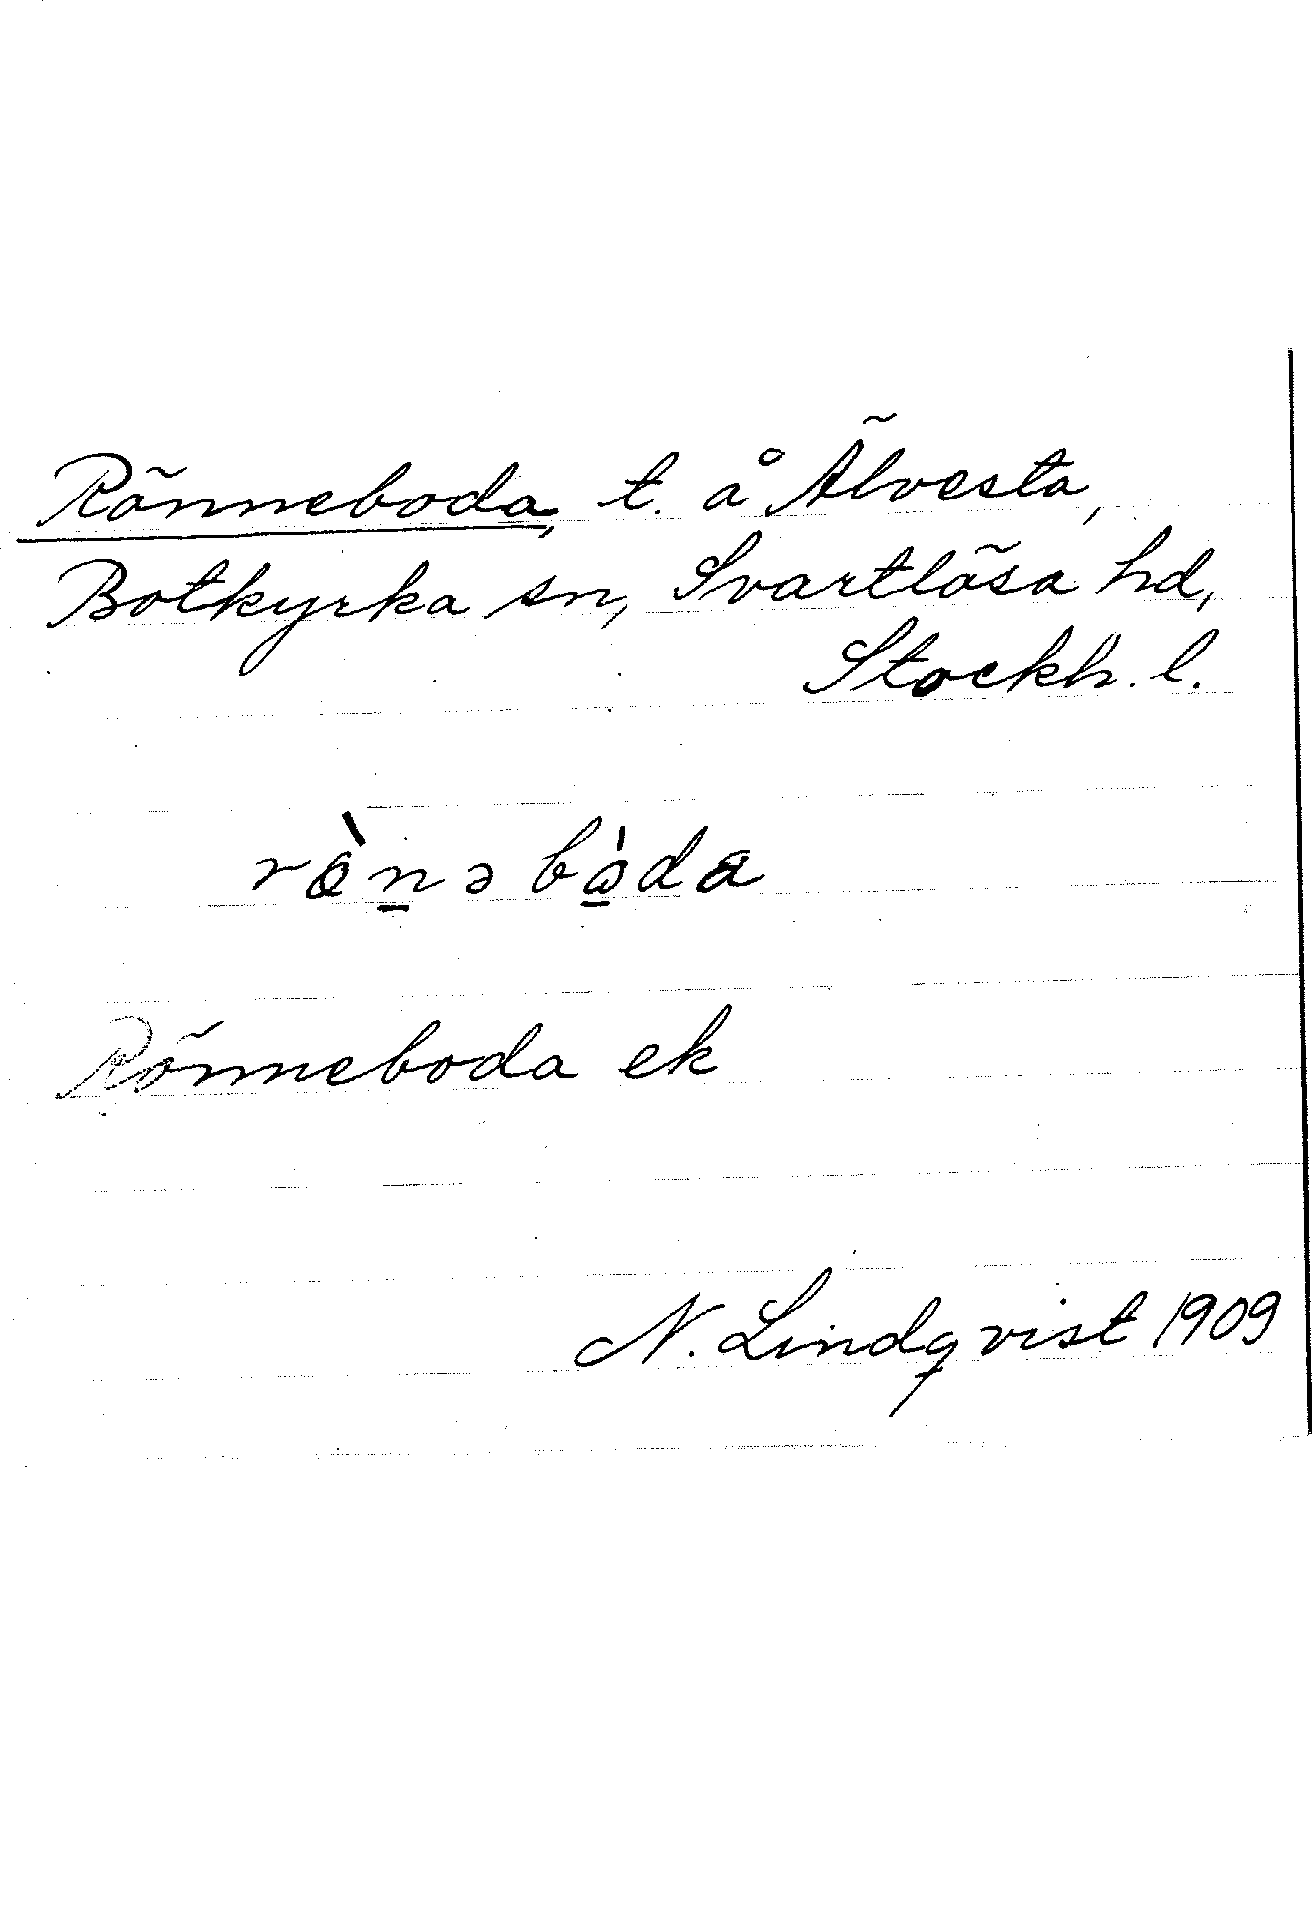 Rõnneboda, t. å Ãlvesta,
Botkyrka sn, Svartlõsa hd,
Stockh. l.
rɵ̀n̲əbὼ̲da
Rõnneboda ek
N. Lindqvist 1909